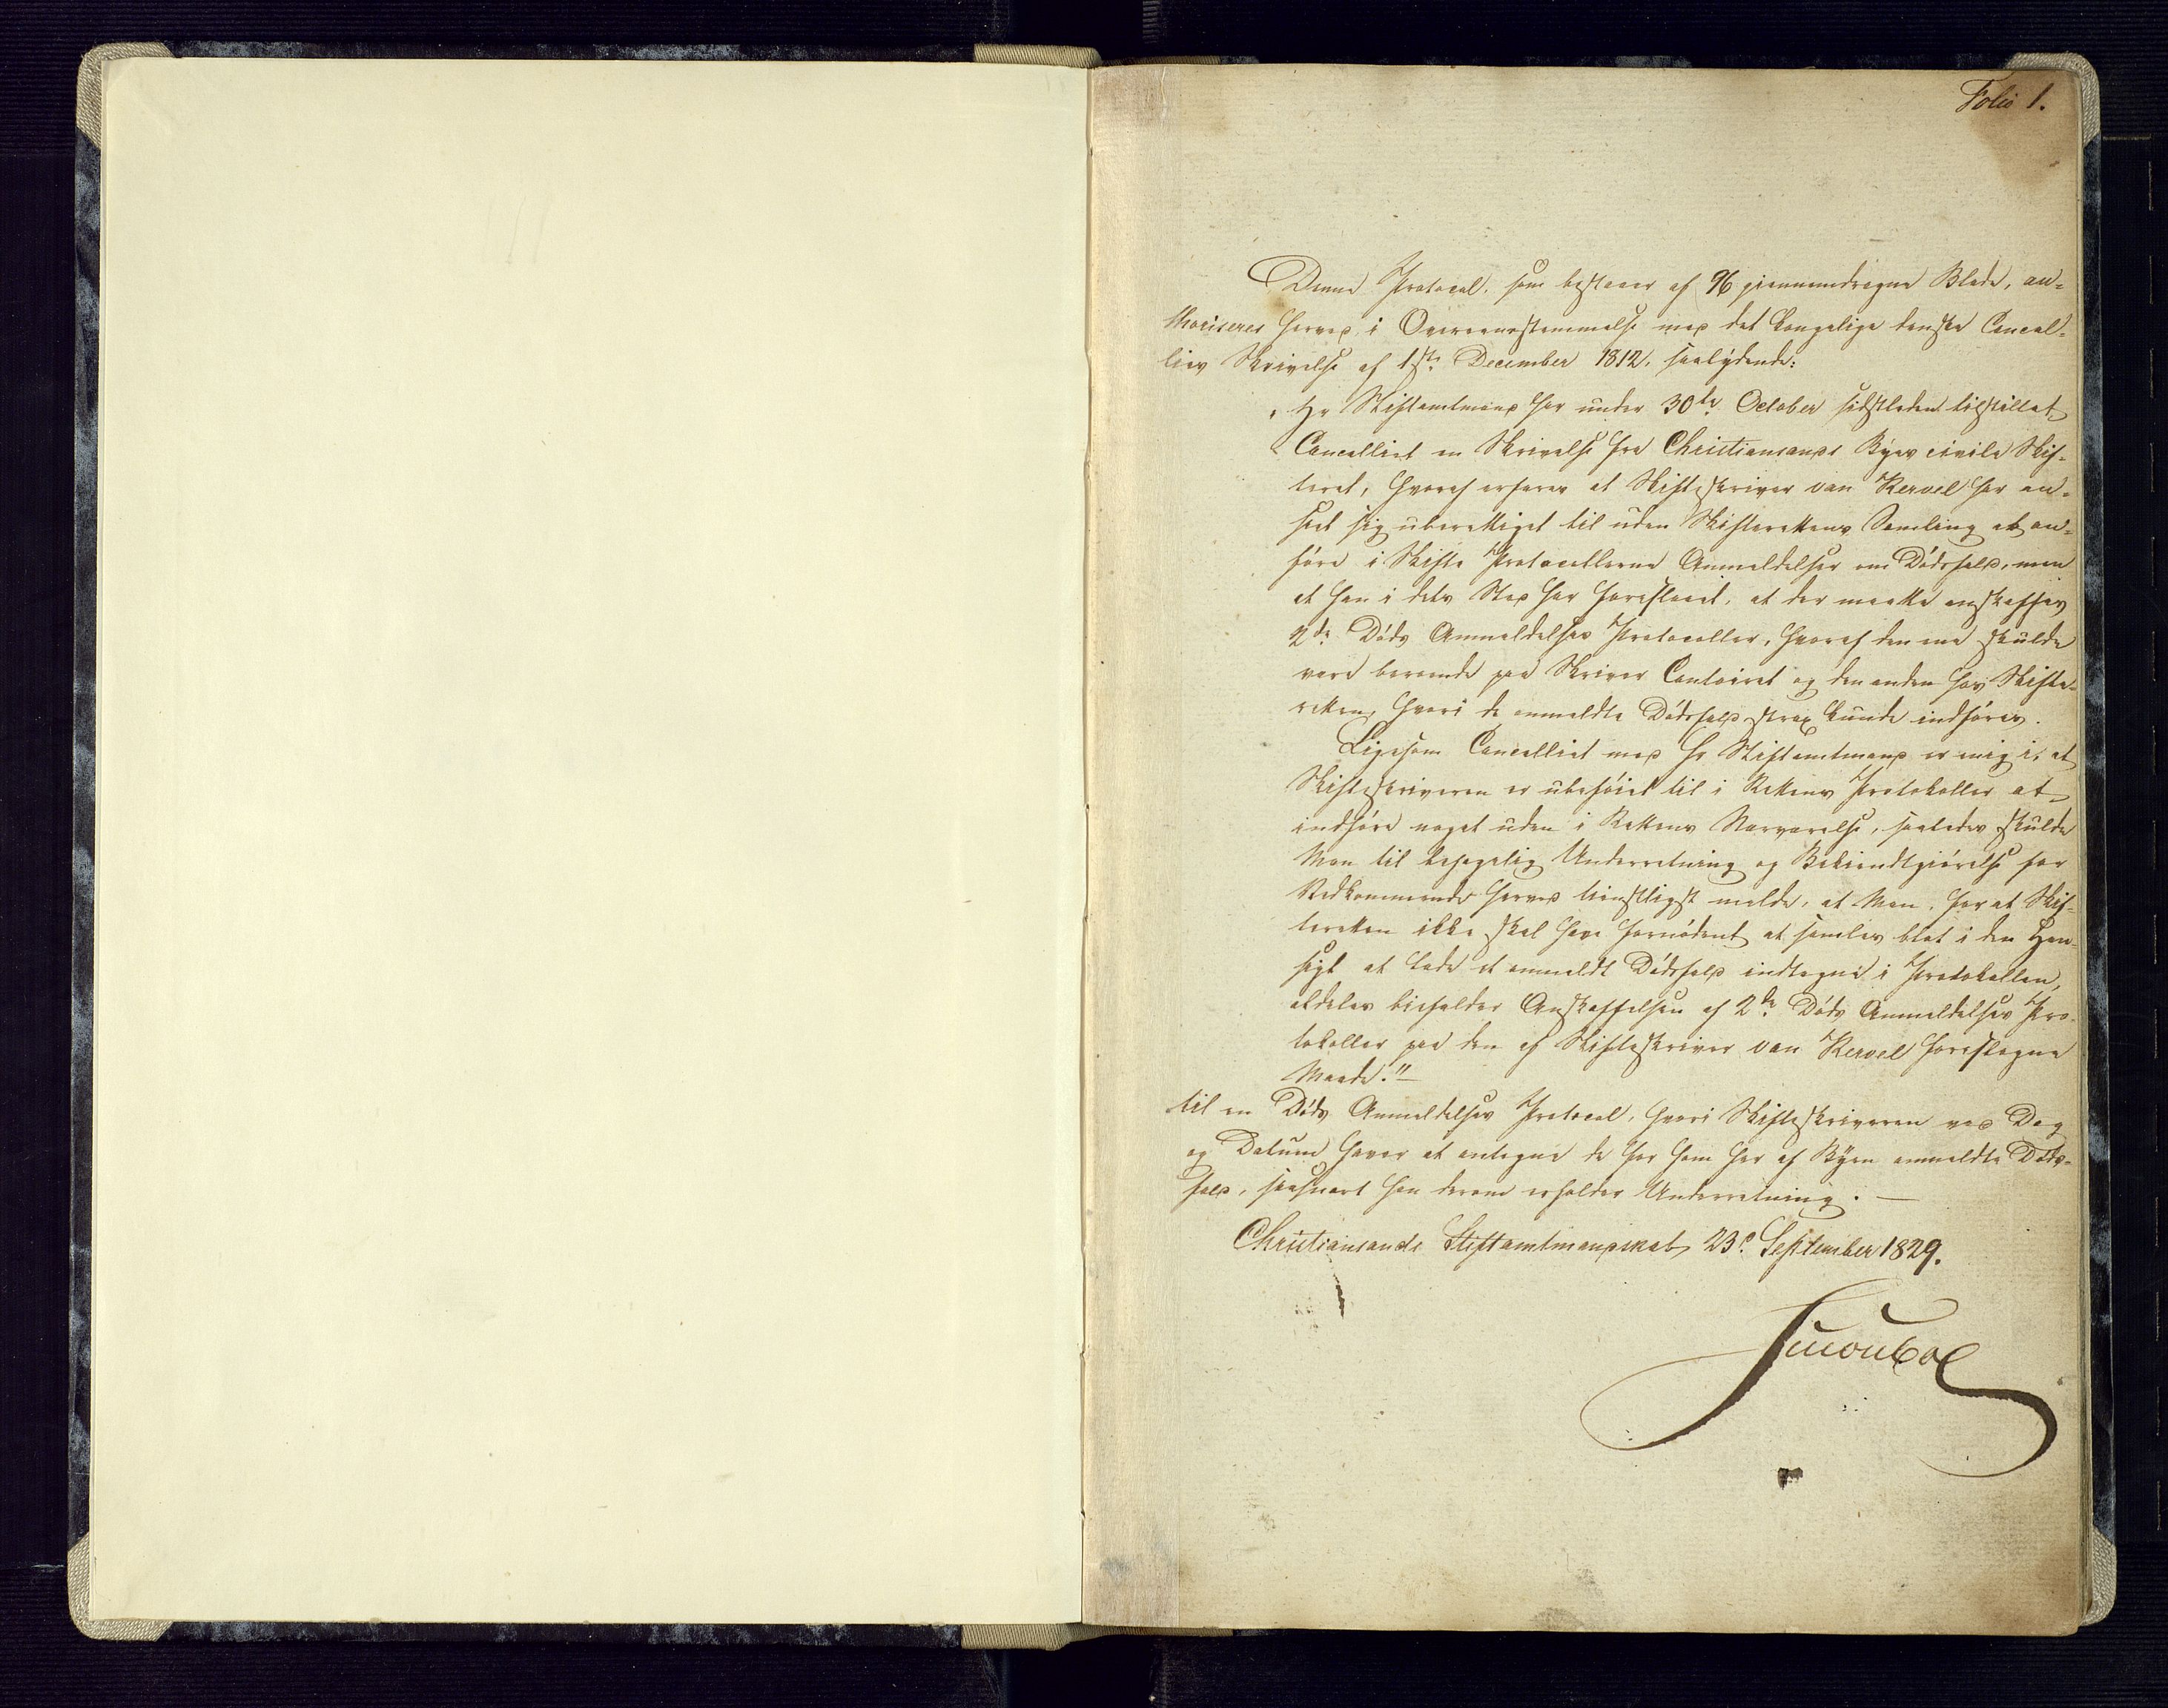 Folio 1.
Denne Protocol, som bestaaer af 96 giennemdragne Blade, au-
thoriseres herved i Overeensstemmelse med det kongelige danske Cancel-
lies Skrivelse af 1ste December 1812, saalydende:
„Hr Stiftamtmand har under 30te October sidstleden tilstillet
Cancelliet en Skrivelse fra Christiansands Byes civile Skif-
teret, hvoraf erfares at Skifteskriver van Kervel har an-
seet sig uberettiget til uden Skifterettens Samling at an-
føre i Skifte Protocollerne Anmeldelser om Dødsfald, men
at han i dets Sted har foreslaaet, at der maatte anskaffes
2de Døds Anmeldelses Protocoller, hvoraf den ene skulde
være beroende paa Skriver Contoiret og den anden hos Skifte-
retten, hvori de anmeldte Dødsfald strax kunde indføres.
Ligesom Cancelliet med Hr Stiftamtmand er enig i, at
Skifteskriveren er ubeføiet til i Rettens Protokoller at
indføre noget uden i Rettens Nærværelse, saaledes skulde
Man til behagelig Underretning og Bekiendtgiørelse for
Vedkommende herved tienstligst melde, at Man, for at Skif-
teretten ikke skal have fornødent at samles blot i den Hen-
sigt at lade et anmeldt Dødsfald indtegne i Protokollen,
aldeles bifalder Anskaffelsen af 2de Døds Anmeldelses Pro-
tokoller paa den af Skifteskriver van Kervel foreslagne
Maade."
til en Døds Anmeldelses Protocol, hvori Skifteskriveren ved Dag
og Datum haver at antegne de for ham her af Byen anmeldte Døds-
fald, saasnart han derom erholder Underretning.
Christiansands Stiftamtmandskab, 23d September 1829.